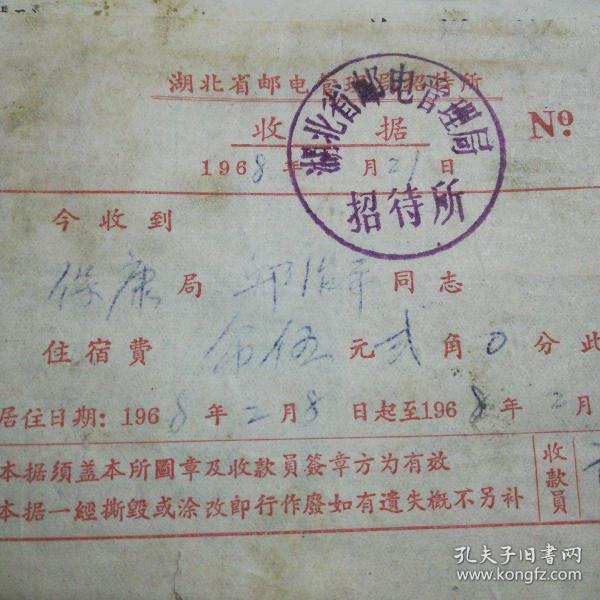 湖北省邮电管理局招待所
收 据
No
1968年 月21日
湖北省邮电管理局
招待所
今收到
保康局 同志
住宿费 伍元贰角0分此
居住日期：1968年2月8日起至1968年2月
本据须盖本所圖章及收款員簽章方为有效
本据一經撕毀或涂改即行作廢如有遺失概不另补
收款員
孔夫子旧書网
www.kongfz.com